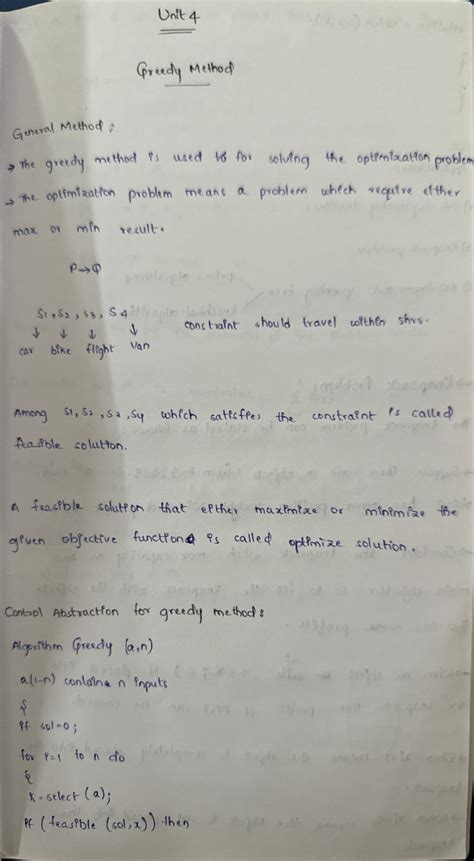 Unit 4
Greedy Method
General Method :
→ The greedy method is used to for solving the optimization problem
→ The optimization problem means a problem which require either
max or min result.
P→Q
S1, S2, S3, S4
↓ ↓ ↓ ↓ constraint should travel within 5hrs.
car bike flight Van
Among S1, S2, S3, S4 which satisfies the constraint is called
feasible solution.
A feasible solution that either maximize or minimize the
given objective function is called optimize solution.
Control Abstraction for greedy method:
Algorithm Greedy (a,n)
a(1-n) contains n inputs
{
if sol=0;
for i=1 to n do
{
x=select (a);
if (feasible (sol,x)) then